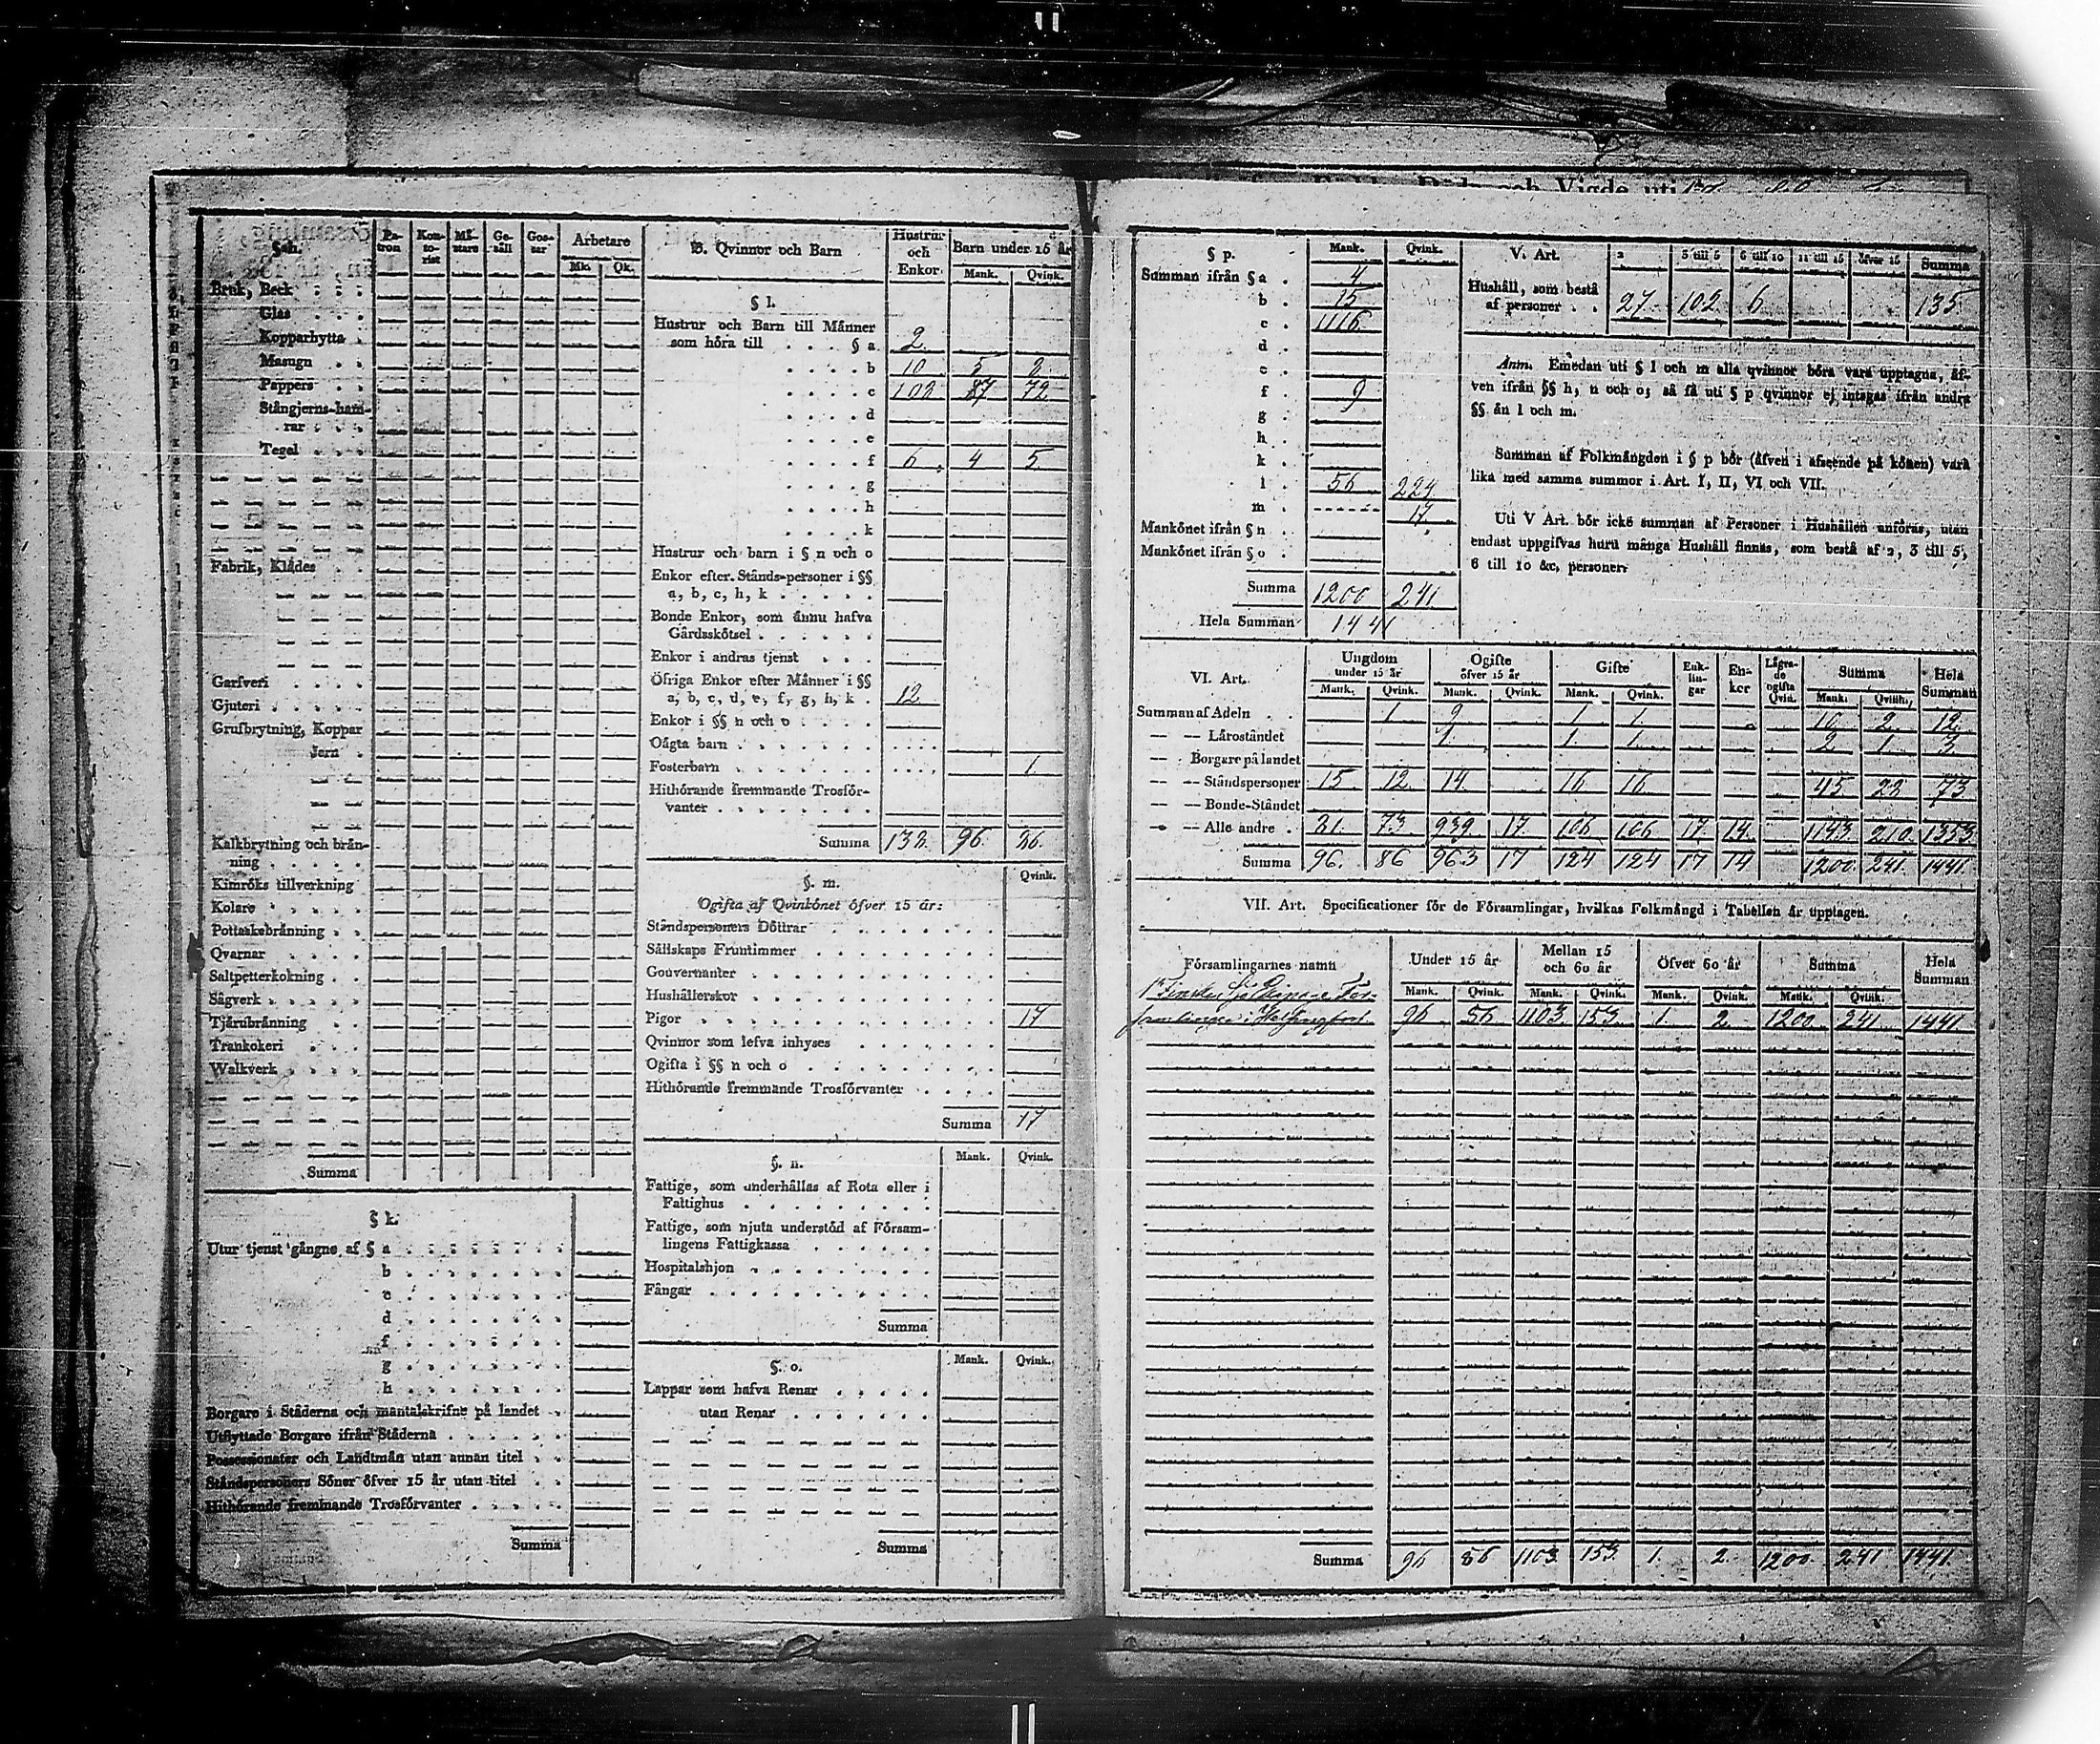 § h.
Pa-tron Kon-to-rist Mä-stare Ge-säll Gos-sar Arbetare
Mk. Qk.
Bruk, Beck
Glas
Kopparhytta
Masugn
Pappers
Stångjerns-ham-
rar
Tegel
Fabrik, Klådes
Garfveri
Gjuteri
Grufbrytning, Koppar
Jern
Kalkbrytning och brän-
ning
Kimröks tillverkning
Kolare
Pottaskebränning
Qvarnar
Saltpetterkokning
Sågverk
Tjärubränning
Trankokeri
Walkverk
Summa
§ k.
Utur tjenst gångne af § a
b
c
d
f
g
h
Borgare i Städerna och mantalskrifne på landet
Utflyttade Borgare ifrån Städerna
Possessionater och Landtmän utan annan titel
Ståndspersoners Söner öfver 15 år utan titel
Hithörande fremmande Trosförvanter
Summa
B. Qvinnor och Barn Hustrur och Enkor Barn under 15 år
Mank. Qvink.
§ l.
Hustrur och Barn till Männer
som höra till § a 2
b 10 5 2
c 102 87 72
d
e
f 6 4 5
g
h
k
Hustrur och barn i § n och o
Enkor efter Stånds-personer i §§
a, b, c, h, k
Bonde Enkor, som ännu hafva
Gårdsskötsel
Enkor i andras tjenst
Öfriga Enkor efter Männer i §§
a, b, c, d, e, f, g, h, k 12
Enkor i §§ n och o
Oägta barn
Fosterbarn 1
Hithörande fremmande Trosför-
vanter
Summa 132 96
§. m. Qvink.
Ogifta af Qvinkönet öfver 15 år:
Ståndspersoners Döttrar
Sällskaps Fruntimmer
Gouvernanter
Hushållerskor
Pigor 17
Qvinnor som lefva inhyses
Ogifta i §§ n och o
Hithörande fremmande Trosförvanter
Summa 17
§. n. Mank. Qvink.
Fattige, som underhållas af Rota eller i
Fattighus
Fattige, som njuta understöd af Försam-
lingens Fattigkassa
Hospitalshjon
Fångar
Summa
§. o. Mank. Qvink.
Lappar som hafva Renar
utan Renar
Summa
§ p. Mank. Qvink.
Summan ifrån § a 4
b 15
c 1116
d
e
f 9
g
h
k
l 56 224
m 17
Mankönet ifrån § n
Mankönet ifrån § o
Summa 1200 241
Hela Summan 1441
V. Art. 2 3 till 5 6 till 10 11 till 15 öfver 15 Summa
Hushåll, som bestå
af personer 27 102 6 135
Anm. Emedan uti § l och m alla qvinnor böra vara upptagna, äf-
ven ifrån §§ h, n och o; så få uti § p qvinnor ej intagas ifrån andra
§§ än l och m.
Summan af Folkmängden i § p bör (äfven i afseende på könen) vara
lika med samma summor i Art. I, II, VI och VII.
Uti V Art. bör icke summan af Personer i Hushållen anföras, utan
endast uppgifvas huru många Hushåll finnas, som bestå af 2, 3 till 5,
6 till 10 &c. personer.
VI. Art. Ungdom under 15 år Ogifte öfver 15 år Gifte Enk-lin-gar En-kor Lägra-de ogifta Qvin. Summa Hela Summan
Mank. Qvink. Mank. Qvink. Mank. Qvink. Mank. Qvink.
Summan af Adeln 1 9 1 1 10 2 12
— — Läroståndet 1 1 1 2 1 3
— Borgare på landet
— — Ståndspersoner 15 12 14 16 16 45 28 73
— — Bonde-Ståndet
— — Alle andre 81 73 939 17 106 106 17 14 1143 210 1353
Summa 96 86 963 17 124 124 17 14 1200 241 1441
VII. Art. Specificationer för de Församlingar, hvilkas Folkmängd i Tabellen är upptagen.
Församlingarnes namn Under 15 år Mellan 15 och 60 år Öfver 60 år Summa Hela Summan
Mank. Qvink. Mank. Qvink. Mank. Qvink. Mank. Qvink.
För-
samlingen i Helsingfors 96 86 1103 153 1 2 1200 241 1441
Summa 96 86 1103 153 1 2 1200 241 1441